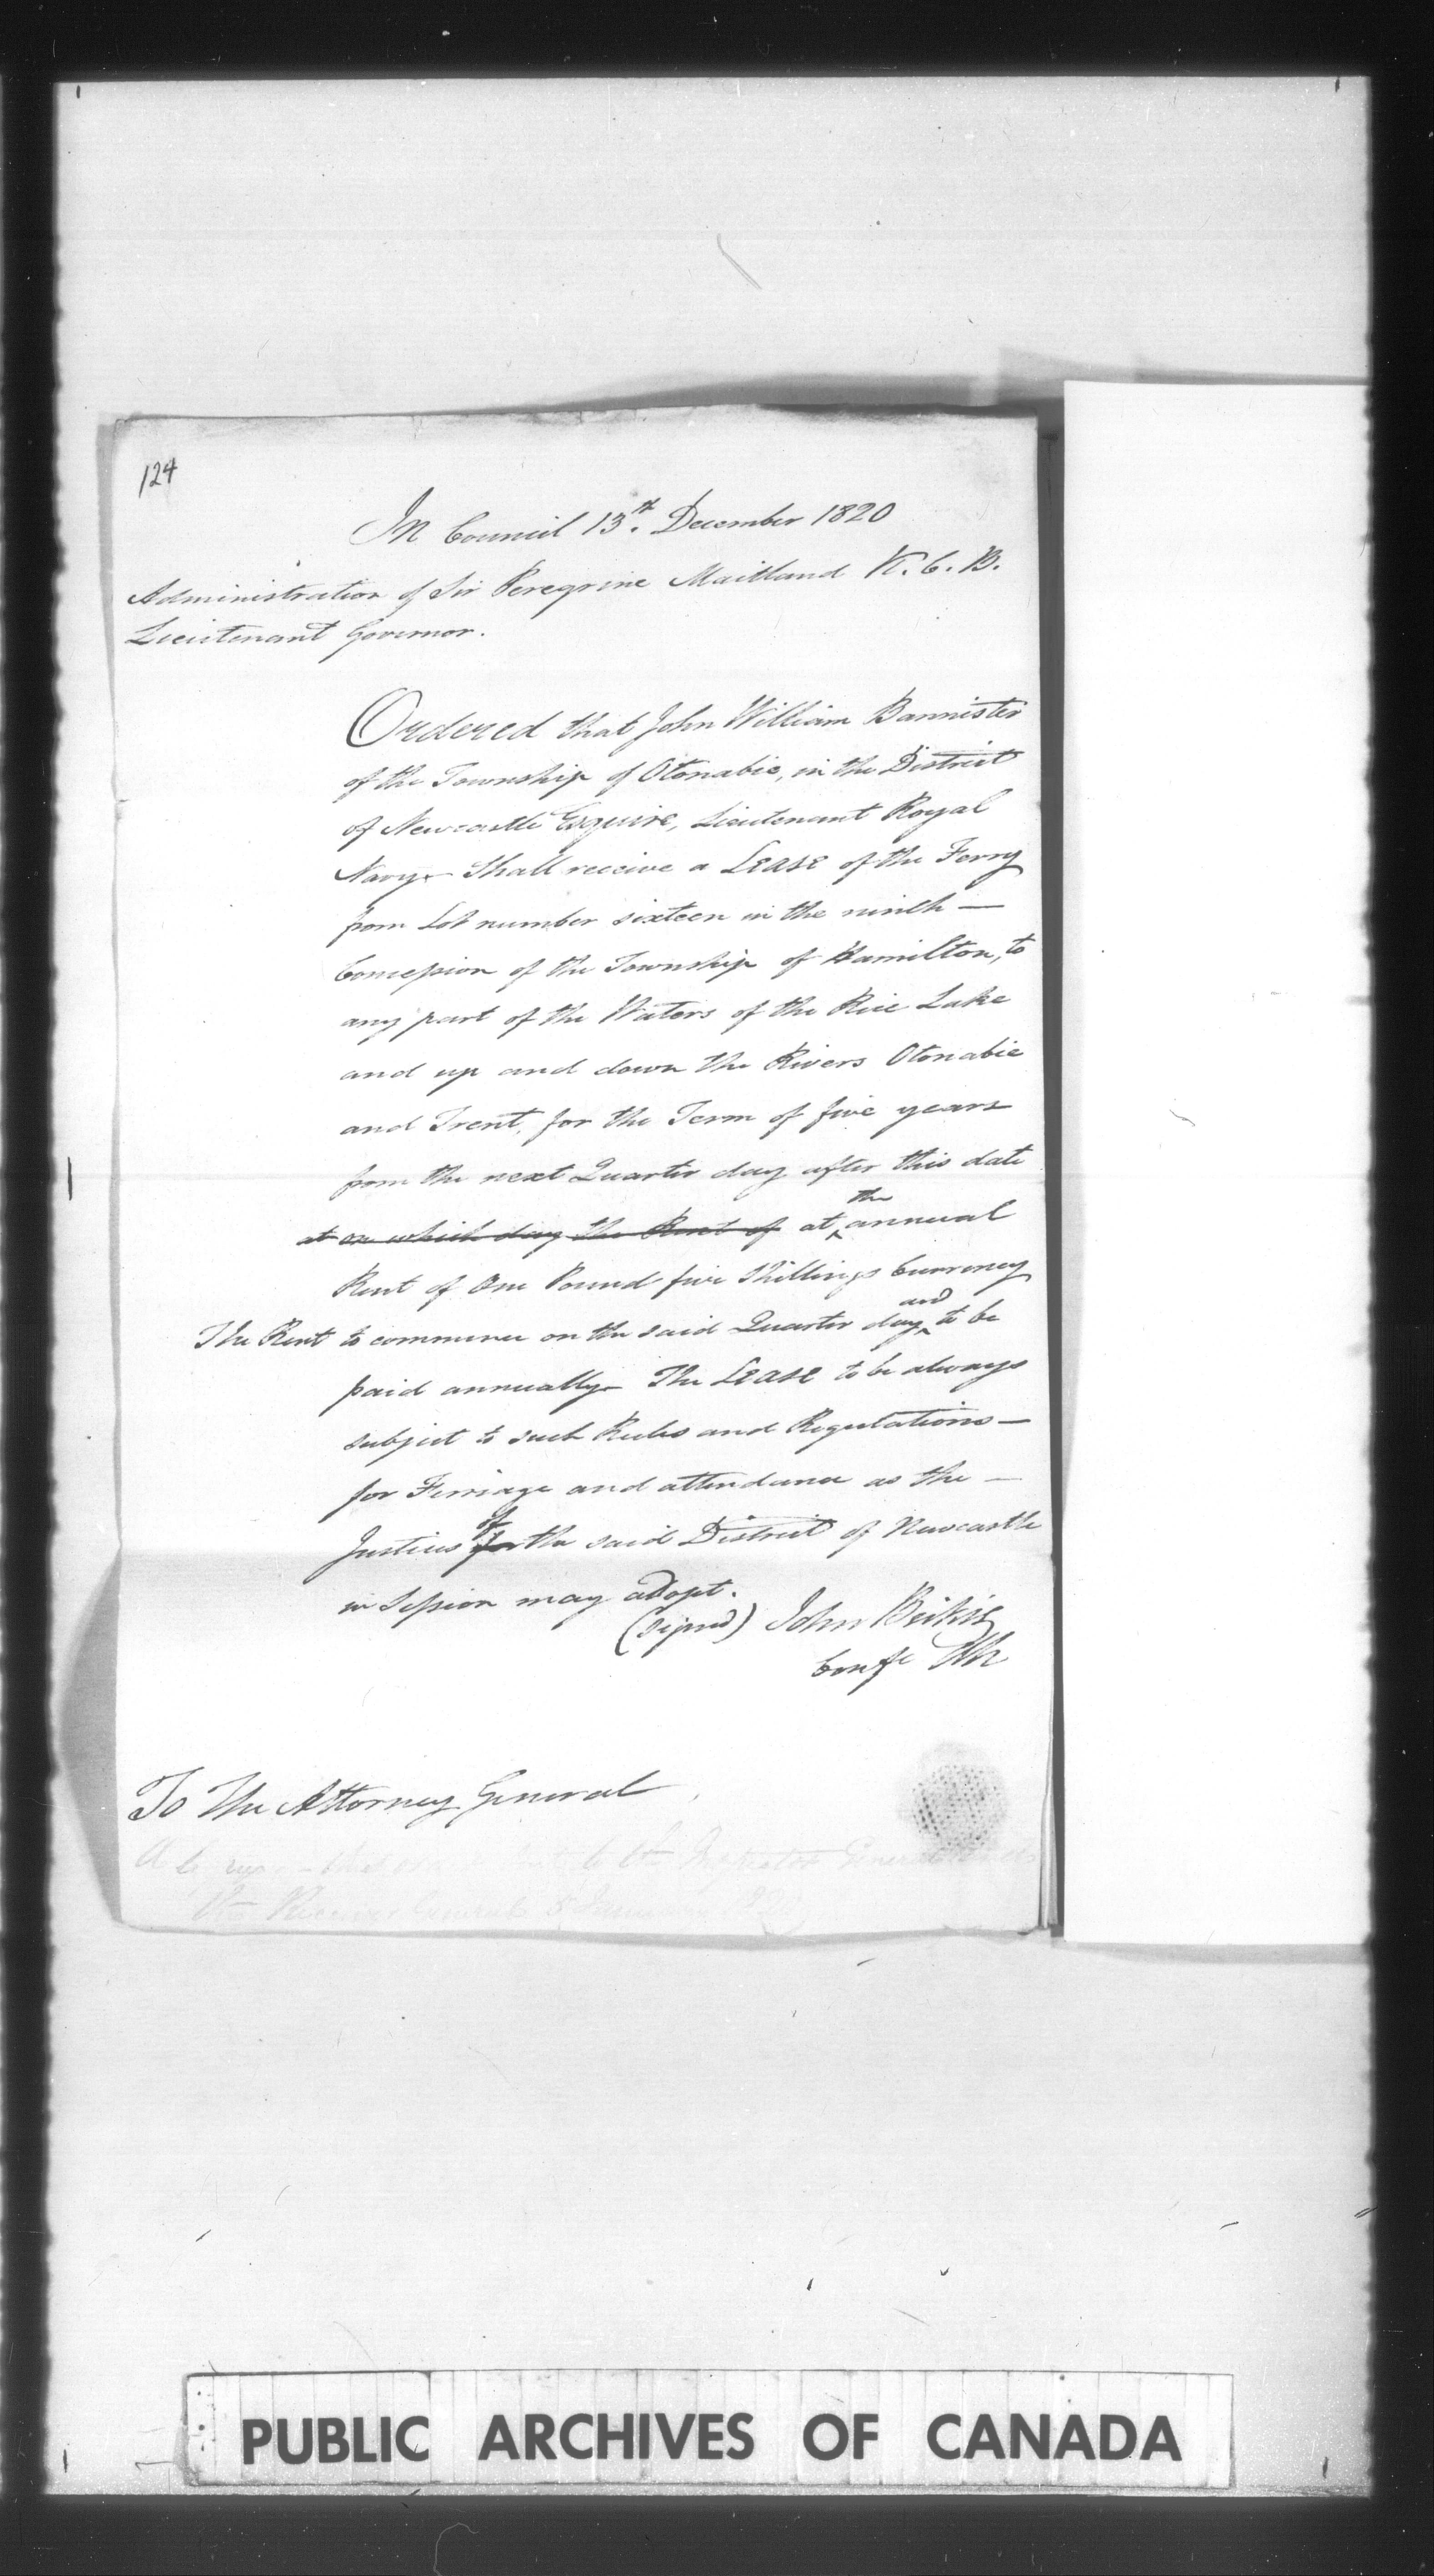 124
In Council 13th. December 1820
Administration of Sir Peregrine Maitland K. C. B.
Lieutenant Governor.
Ordered that John William Bannister
of the Township of Otonabie, in the District
of Newcastle Esquire, Lieutenant Royal
Navy - Shall receive a Lease of the Ferry
from Lot number sixteen in the ninth —
Concession of the Township of Hamilton, to
any part of the Waters of the Rice Lake
and up and down the Rivers Otonabie
and Trent, for the Term of five years
from the next Quarter day after this date
at on which day the Rent of at the annual
Rent of One Pound five Shillings Currency
The Rent to commence on the said Quarter day and to be
paid annually - The Lease to be always
subject to such Rules and Regulations —
for Ferriage and attendance as the —
Justices of for the said District of Newcastle
in Session may adopt.
(signed) John Beikie
To The Attorney General
to the Inspector General
the Receiver General
PUBLIC ARCHIVES OF CANADA